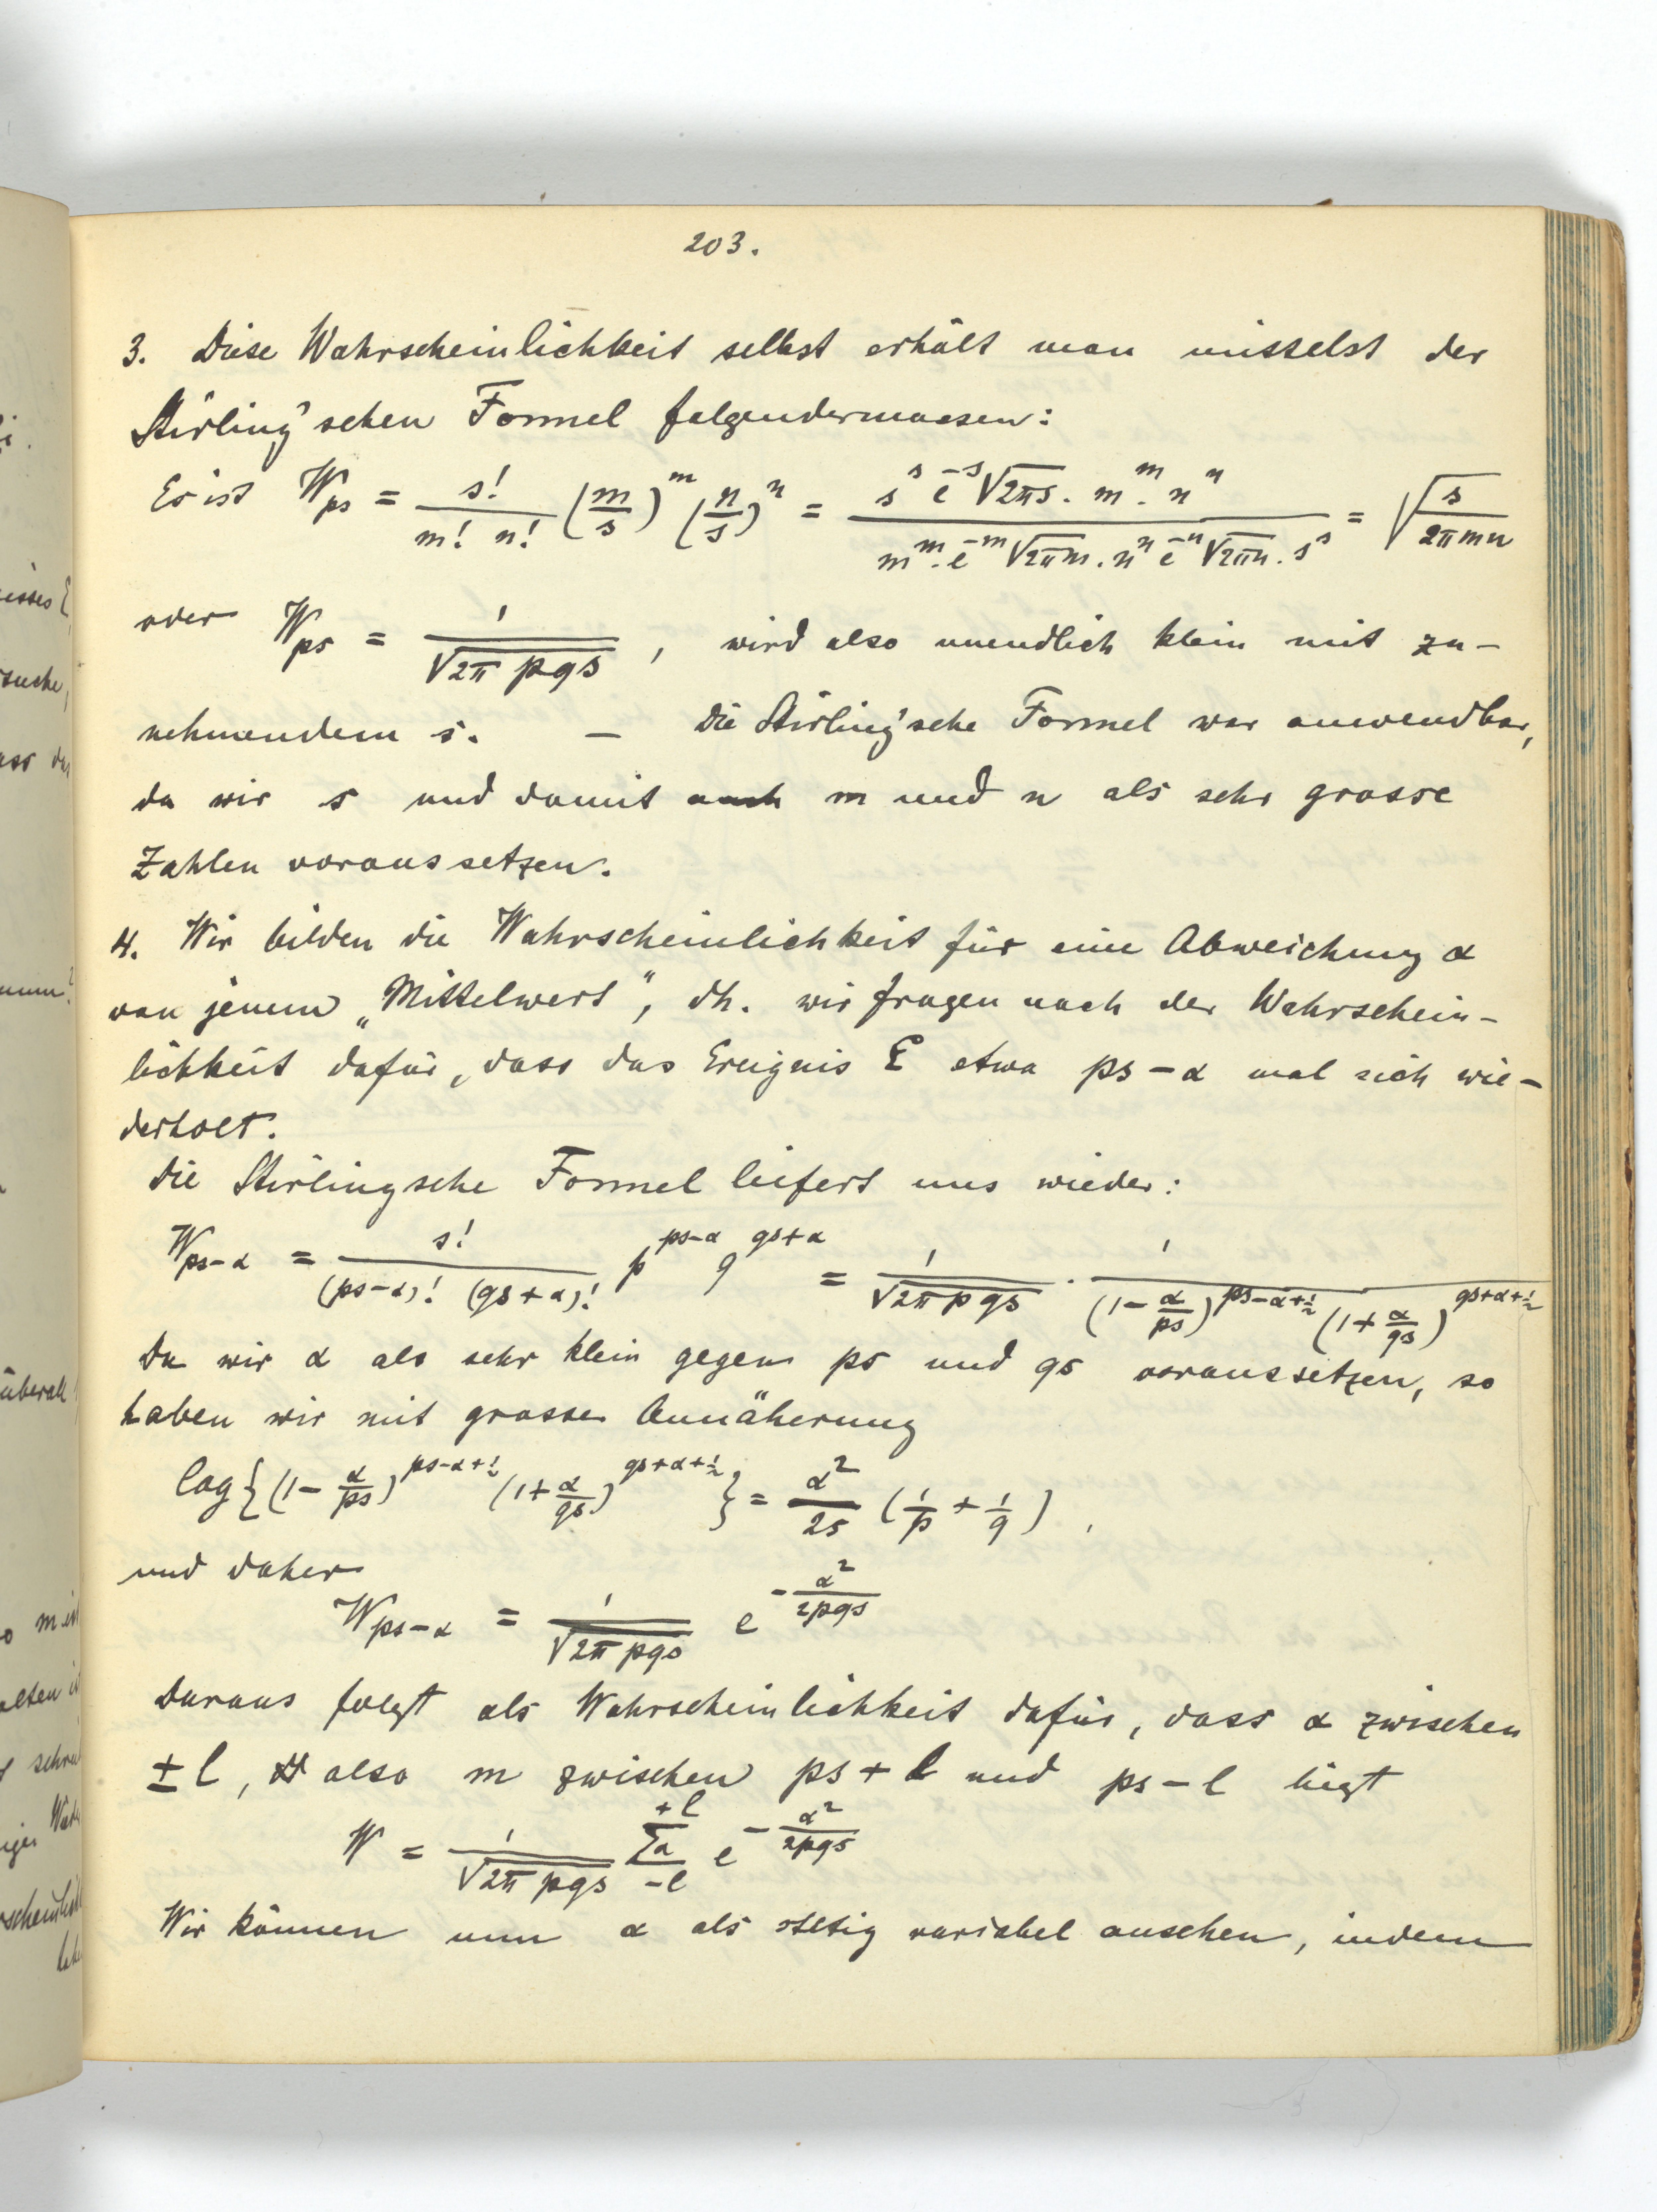 203.
3. Diese Wahrscheinlichkeit selbst erhält man mittelst der
Stirling'schen Formel folgendermassen:
Es ist W_{ps} = \frac{s!}{m! n!} (\frac{m}{s})^m (\frac{n}{s})^n = \frac{s^s e^{-s} \sqrt{2πs} . m^m . n^n}{m^m . e^{-m} \sqrt{2πm} . n^n e^{-n} \sqrt{2πn} . s^s} = \sqrt{\frac{s}{2πmn}}
oder W_{ps} = \frac{1}{\sqrt{2π pqs}}, wird also unendlich klein mit zu-
nehmendem s. — Die Stirling'sche Formel war anwendbar,
da wir s und damit auch m und n als sehr grosse
Zahlen voraussetzen.
4. Wir bilden die Wahrscheinlichkeit für eine Abweichung α
von jenem „Mittelwert", dh. wir fragen nach der Wahrschein-
lichkeit dafür, dass das Ereignis E etwa ps-α mal sich wie-
derholt.
Die Stirlingsche Formel liefert uns wieder:
W_{ps-α} = \frac{s!}{(ps-α)! (qs+α)!} p^{ps-α} q^{qs+α} = \frac{1}{\sqrt{2π pqs}} . \frac{1}{(1-\frac{α}{ps})^{ps-α+\frac{1}{2}} (1+\frac{α}{qs})^{qs+α+\frac{1}{2}}}
Da wir α als sehr klein gegen ps und qs voraussetzen, so
haben wir mit grosser Annäherung
log{(1-\frac{α}{ps})^{ps-α+\frac{1}{2}} (1+\frac{α}{qs})^{qs+α+\frac{1}{2}}} = \frac{α^2}{2s} (\frac{1}{p} + \frac{1}{q}),
und daher
W_{ps-α} = \frac{1}{\sqrt{2π pqs}} e^{-\frac{α^2}{2pqs}}
Daraus folgt als Wahrscheinlichkeit dafür, dass α zwischen
± l, also m zwischen ps + l und ps - l liegt
W = \frac{1}{\sqrt{2π pqs}} \sum_{-l}^{+l} e^{-\frac{α^2}{2pqs}}
Wir können nun α als stetig variabel ansehen, indem